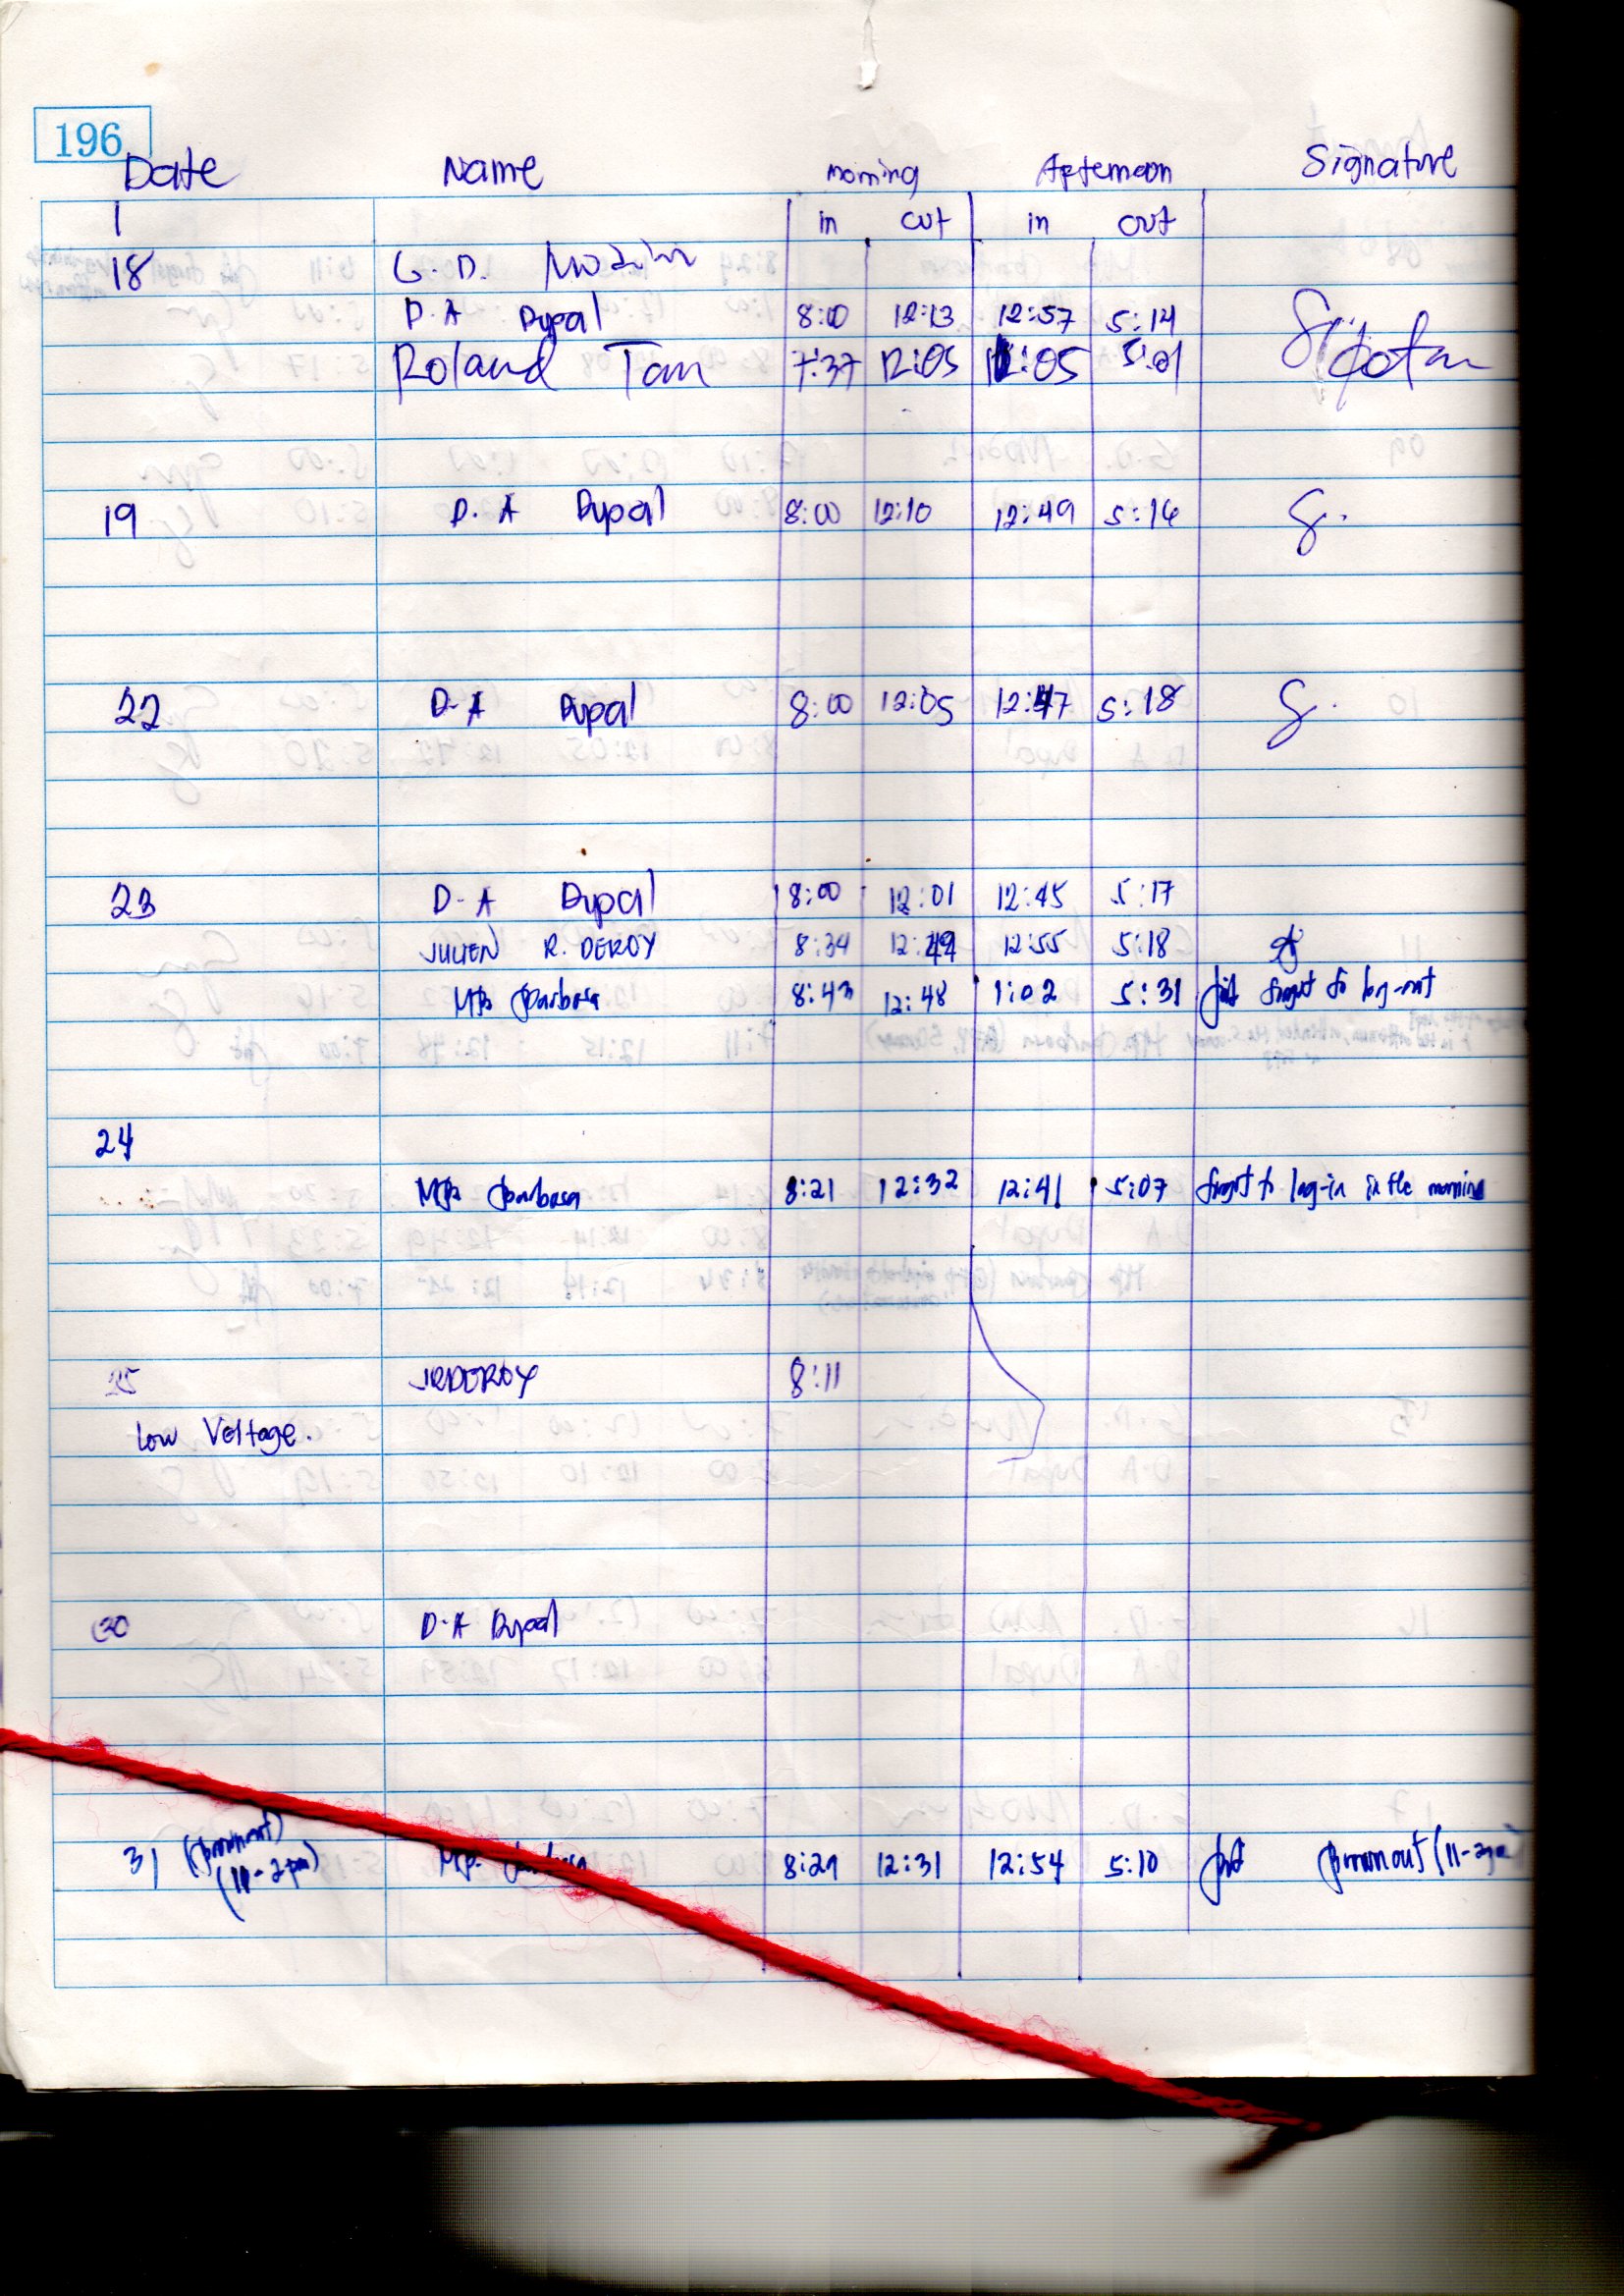 196
Date Name morning Afternoon Signature
1 in out in out
18 G. D.
D. A Dypal 8:00 12:13 12:57 5:14
Roland Tan 7:37 12:05 1:05 5:01
19 D. A Dypal 8:00 12:10 12:49 5:16
22 D. A Dypal 8:00 12:05 12:47 5:18
23 D. A Dypal 8:00 12:01 12:45 5:17
JULIEN R. DEROY 8:34 12:49 12:55 5:18
Barbosa 8:43 12:48 1:02 5:31 forgot to log-out
24
Barbosa 8:21 12:32 12:41 5:07 forgot to log-in in the morning
25 JRDEROY 8:11
Low Voltage.
30 D. A Dypal
31 (brownout) (11-2pm) 8:29 12:31 12:54 5:10 Brownout (11-2pm)